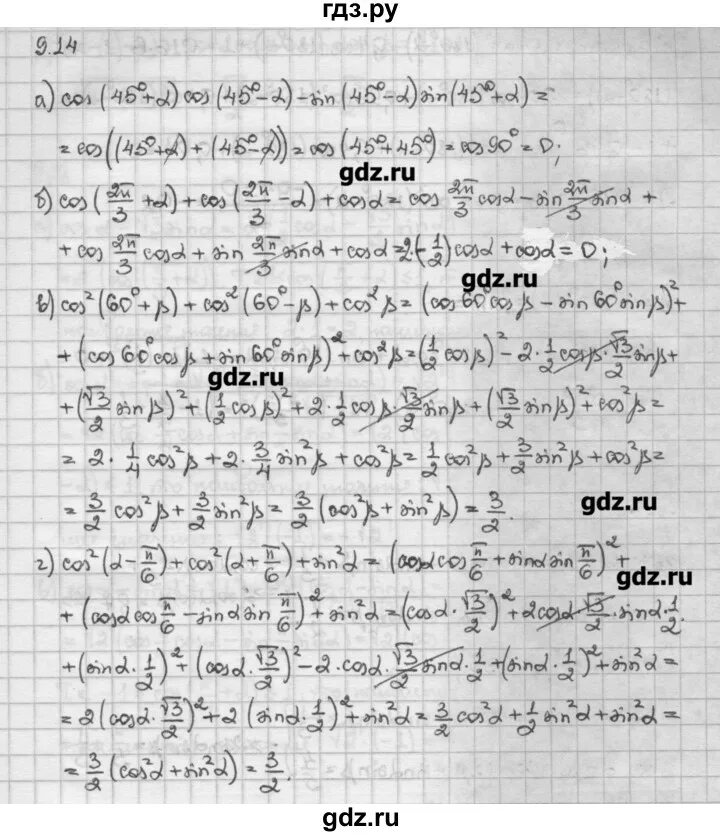 гдз.ру
9.14
а) cos(45°+α)cos(45°-α)-sin(45°-α)sin(45°+α)=
=cos((45°+α)+(45°-α))=cos(45°+45°)=cos90°=0;
gdz.ru
б) cos(2π/3+α)+cos(2π/3-α)+cosα=cos 2π/3 cosα-sin 2π/3 sinα+
+cos 2π/3 cosα+sin 2π/3 sinα+cosα=2·(-1/2)cosα+cosα=0;
gdz.ru
в) cos²(60°+β)+cos²(60°-β)+cos²β=(cos60°cosβ-sin60°sinβ)²+
+(cos60°cosβ+sin60°sinβ)²+cos²β=(1/2 cosβ)²-2·1/2 cosβ·√3/2 sinβ+
gdz.ru
+(√3/2 sinβ)²+(1/2 cosβ)²+2·1/2 cosβ √3/2 sinβ+(√3/2 sinβ)²+cos²β=
=2·1/4 cos²β+2·3/4 sin²β+cos²β=1/2 cos²β+3/2 sin²β+cos²β=
=3/2 cos²β+3/2 sin²β=3/2(cos²β+sin²β)=3/2.
gdz.ru
г) cos²(α-π/6)+cos²(α+π/6)+sin²α=(cosαcos π/6+sinαsin π/6)²+
gdz.ru
+(cosαcos π/6-sinαsin π/6)²+sin²α=(cosα·√3/2)²+2cosα·√3/2·sinα·1/2.
+(sinα·1/2)²+(cosα·√3/2)²-2·cosα·√3/2 sinα·1/2+(sinα·1/2)²+sin²α=
=2(cosα·√3/2)²+2(sinα·1/2)²+sin²α=3/2 cos²α+1/2 sin²α+sin²α=
=3/2(cos²α+sin²α)=3/2.
gdz.ru